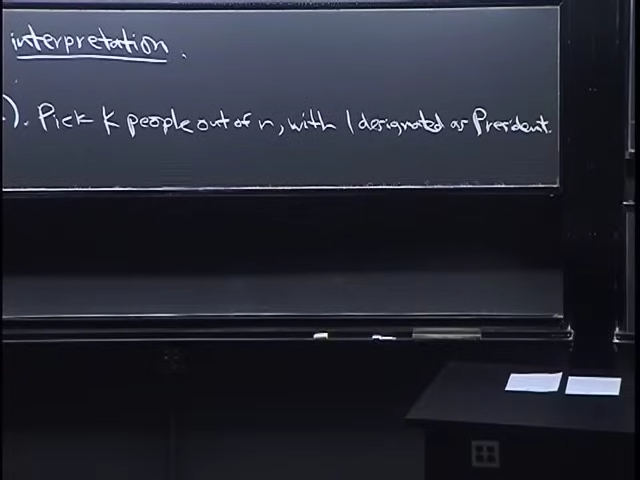 interpretation.
). Pick k people out of n, with 1 designated as President.